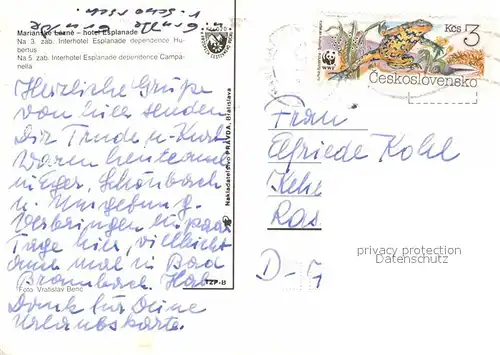 Grüße
Grüße
v.
Mariánské Lázně – hotel Esplanade
Na 3. zab. Interhotel Esplanade dependence Hu-
bertus
Na 5 zab. Interhotel Esplanade dependence Campa-
nella
Herzliche Grüße
von hier senden
Dir Trude u. Kurt
Waren heute auch
in Eger, Schönbach
u. Umgebung.
Verbringen ein paar
Tage hier, vielleicht
auch mal in Bad
Brambach. Hab
Dank für Deine
Urlaubskarte.
Foto Vratislav Benc
TZP-B
Nakladateľstvo PRAVDA, Bratislava
Kčs 3
WWF
Československo
Frau
Elfriede Kohl
Kehl
Ras
D-7
privacy protection
Datenschutz